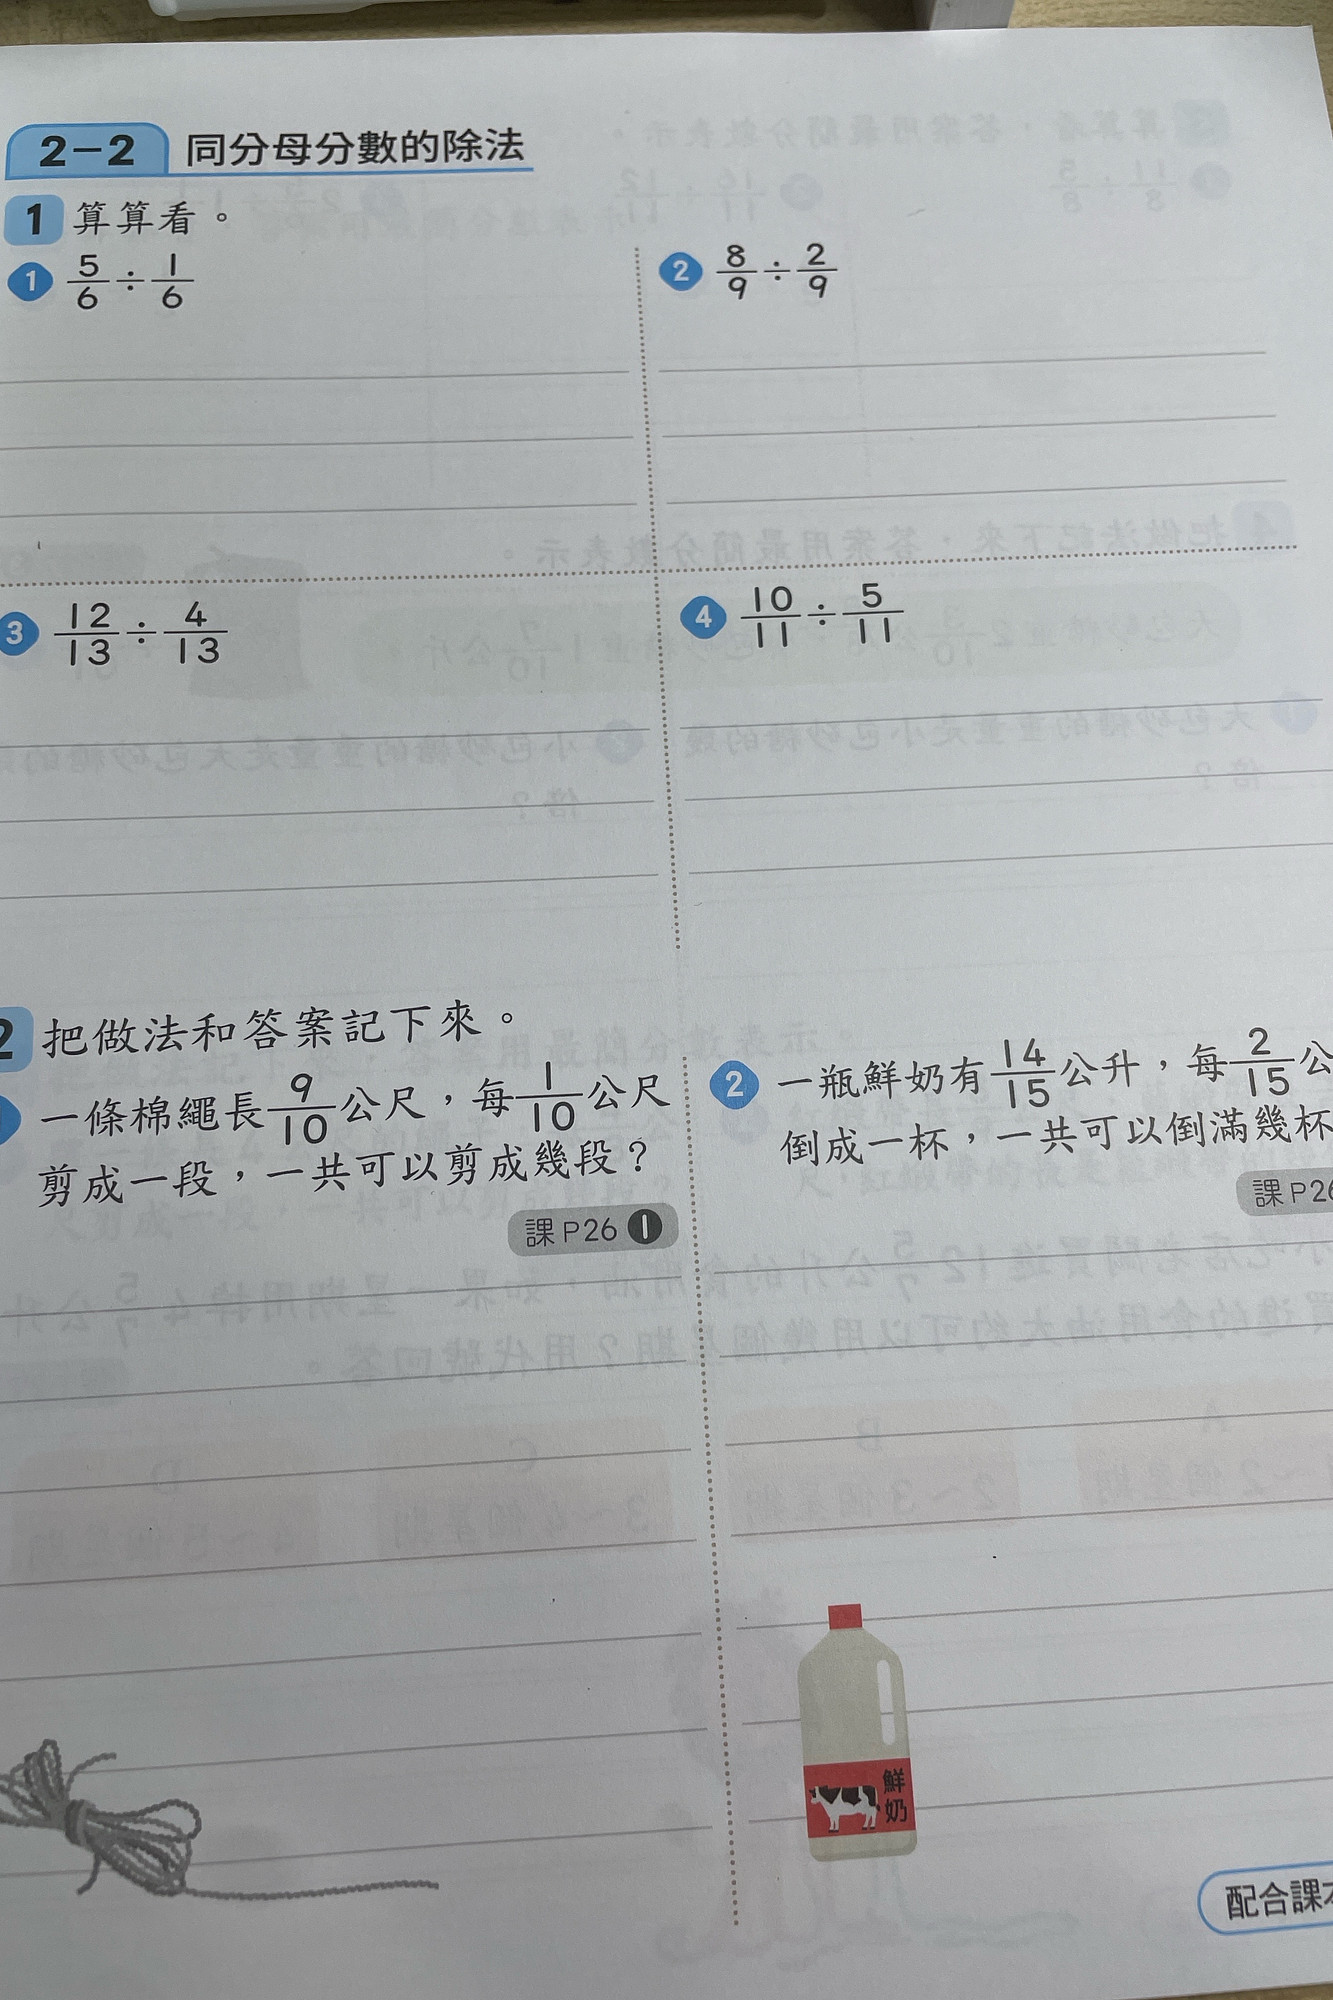 2-2 同分母分數的除法
1 算算看。
1 5/6 ÷ 1/6
2 8/9 ÷ 2/9
3 12/13 ÷ 4/13
4 10/11 ÷ 5/11
2 把做法和答案記下來。
一條棉繩長9/10公尺，每1/10公尺
剪成一段，一共可以剪成幾段？
課P26 1
2 一瓶鮮奶有14/15公升，每2/15公
倒成一杯，一共可以倒滿幾杯
課P26
鮮
奶
配合課本